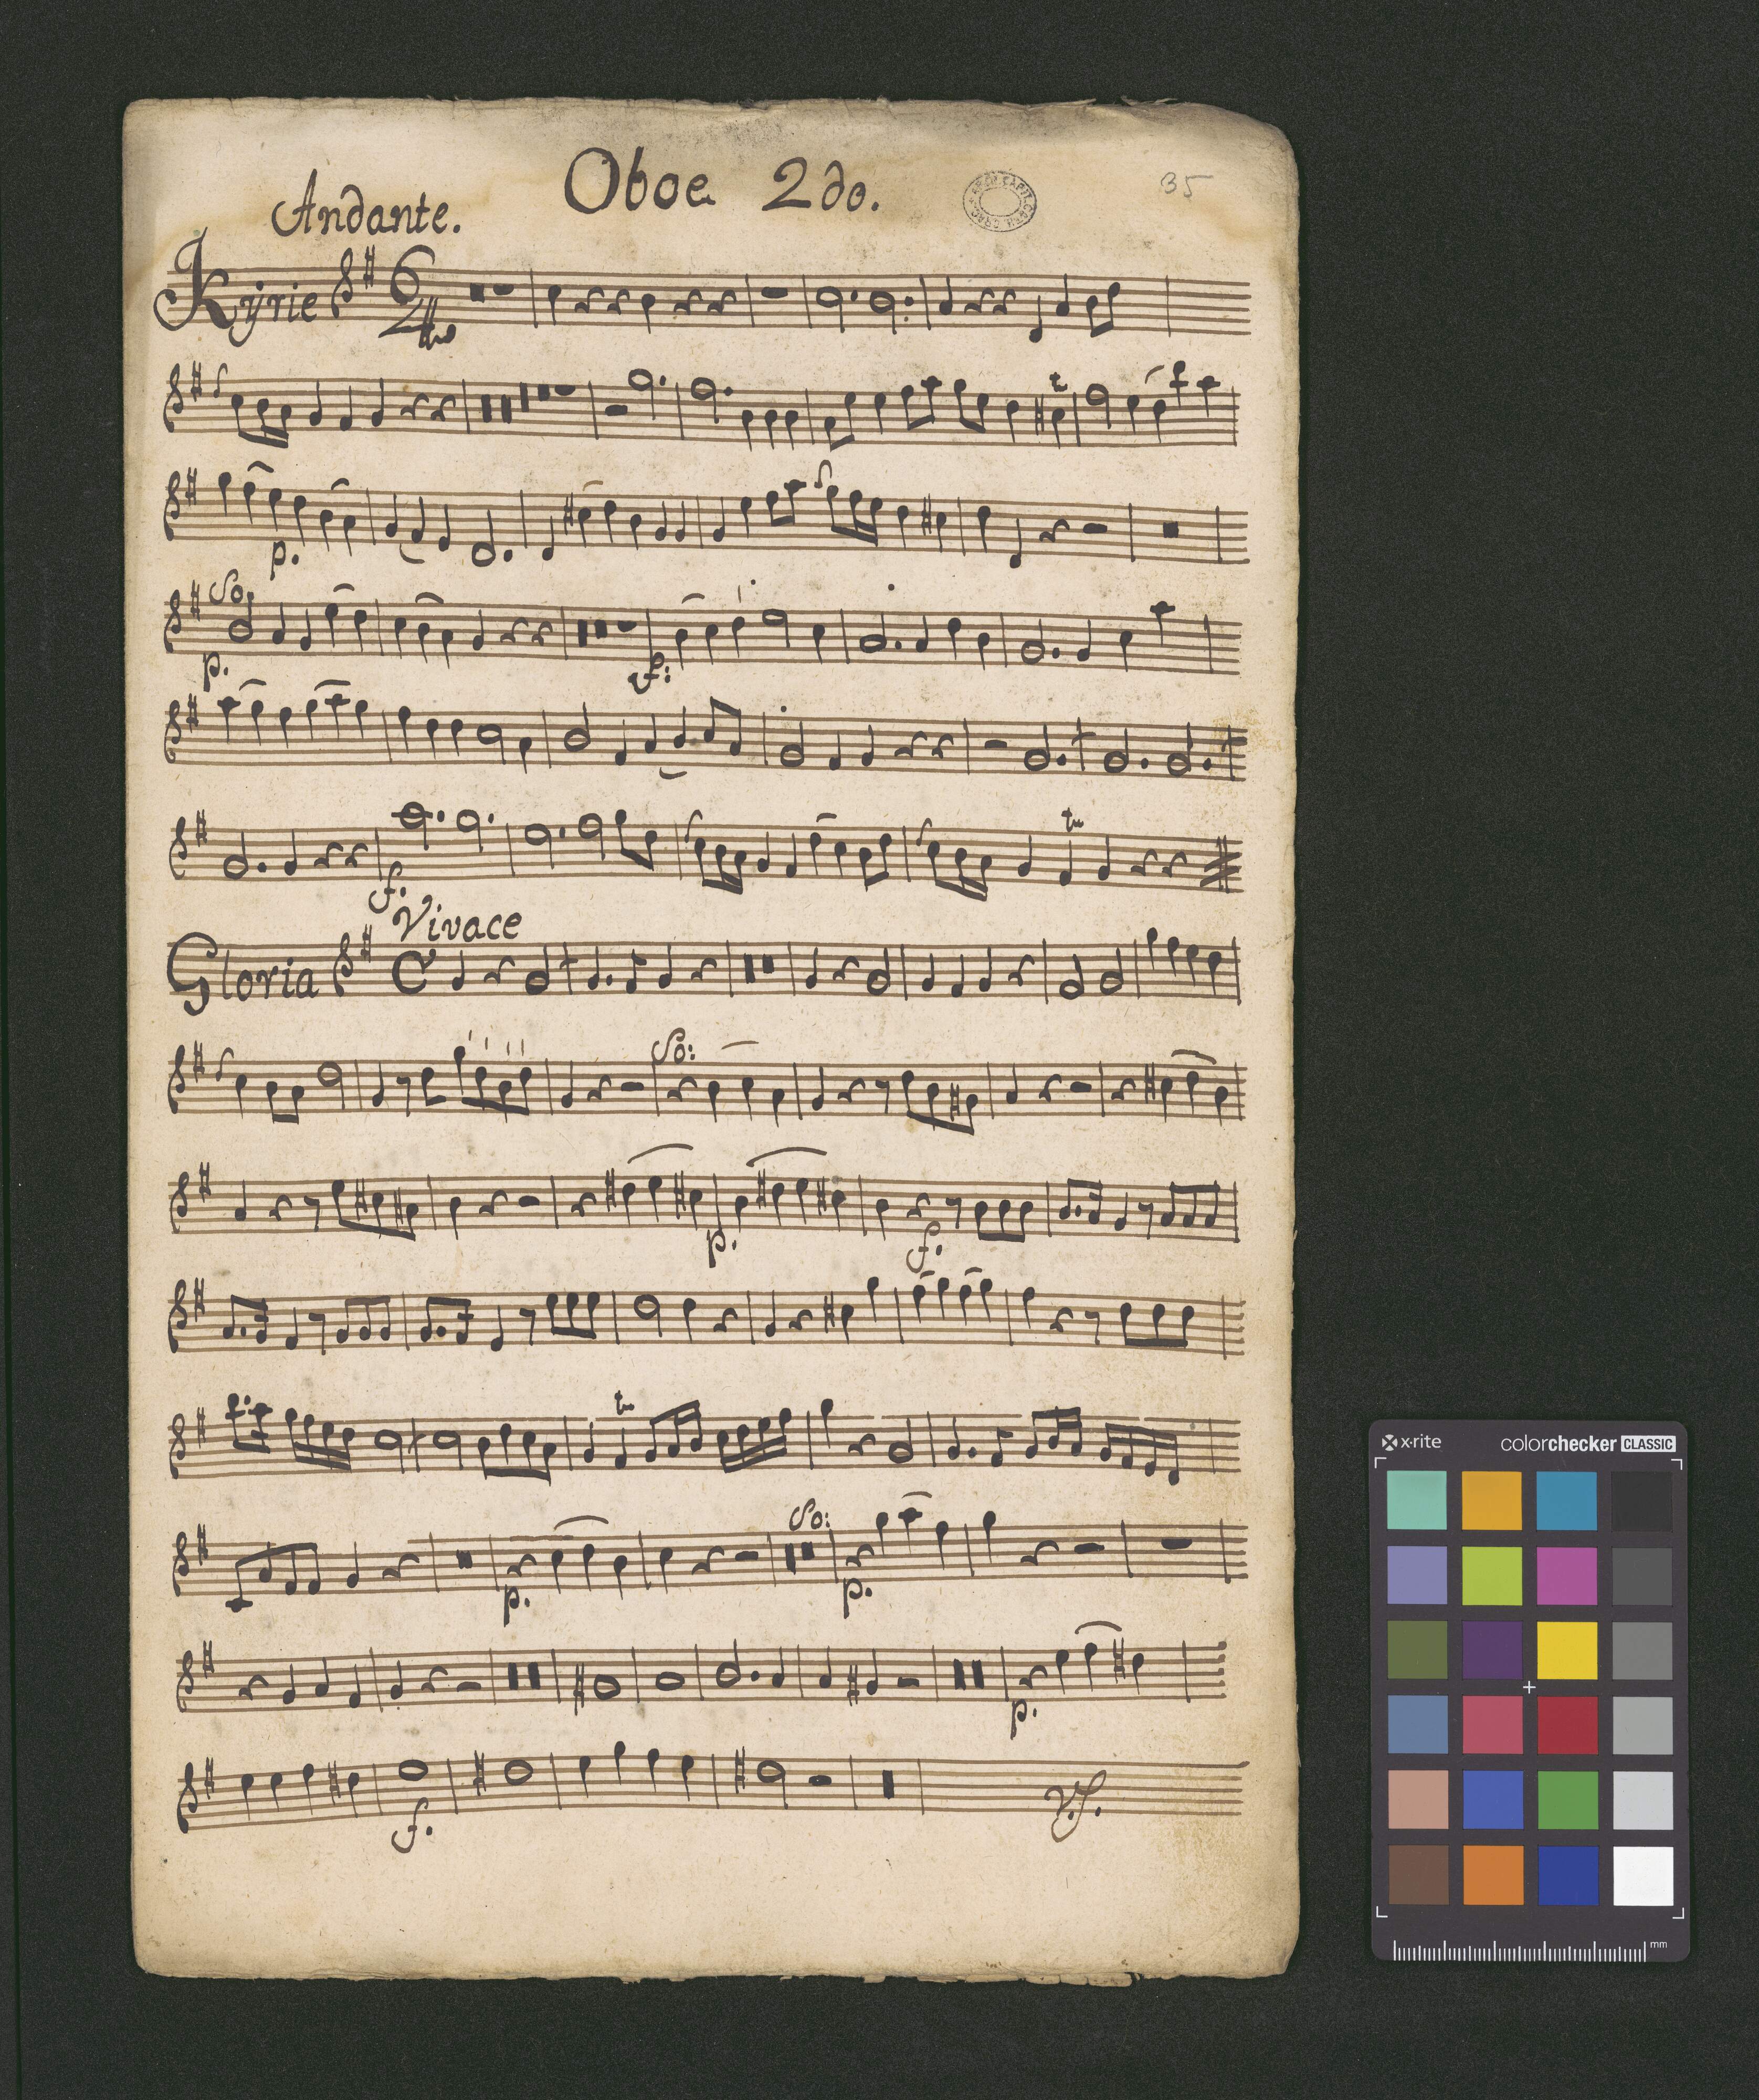 Oboe 2do.
35
Andante.
Kyrie
So
p.
p.
f.
f.
Vivace
Gloria
So:
p.
f.
tr
So:
p.
p.
p.
f.
V.S.
x-rite
colorchecker CLASSIC
mm